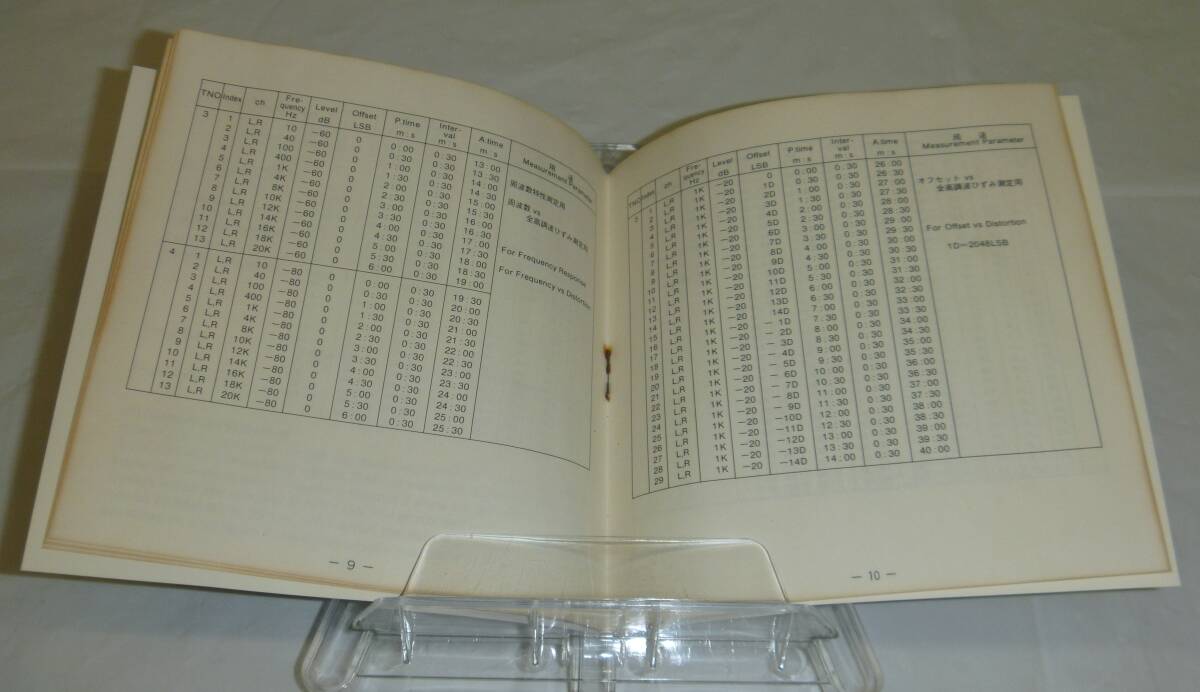 TNO Index ch Fre-quency Hz Level dB Offset LSB P.time m : s Inter-val m : s A.time m : s 用　途 Measurement Parameter
3 1 L,R 10 −60 0 0 : 00 0 : 30 13 : 00 周波数特性測定用
2 L,R 40 −60 0 0 : 30 0 : 30 13 : 30 周波数 vs
3 L,R 100 −60 0 1 : 00 0 : 30 14 : 00 全高調波ひずみ測定用
4 L,R 400 −60 0 1 : 30 0 : 30 14 : 30
5 L,R 1K −60 0 2 : 00 0 : 30 15 : 00 For Frequency Response
6 L,R 4K −60 0 2 : 30 0 : 30 15 : 30 For Frequency vs Distortion
7 L,R 8K −60 0 3 : 00 0 : 30 16 : 00
8 L,R 10K −60 0 3 : 30 0 : 30 16 : 30
9 L,R 12K −60 0 4 : 00 0 : 30 17 : 00
10 L,R 14K −60 0 4 : 30 0 : 30 17 : 30
11 L,R 16K −60 0 5 : 00 0 : 30 18 : 00
12 L,R 18K −60 0 5 : 30 0 : 30 18 : 30
13 L,R 20K −60 0 6 : 00 0 : 30 19 : 00
4 1 L,R 10 −80 0 0 : 00 0 : 30 19 : 30
2 L,R 40 −80 0 0 : 30 0 : 30 20 : 00
3 L,R 100 −80 0 1 : 00 0 : 30 20 : 30
4 L,R 400 −80 0 1 : 30 0 : 30 21 : 00
5 L,R 1K −80 0 2 : 00 0 : 30 21 : 30
6 L,R 4K −80 0 2 : 30 0 : 30 22 : 00
7 L,R 8K −80 0 3 : 00 0 : 30 22 : 30
8 L,R 10K −80 0 3 : 30 0 : 30 23 : 00
9 L,R 12K −80 0 4 : 00 0 : 30 23 : 30
10 L,R 14K −80 0 4 : 30 0 : 30 24 : 00
11 L,R 16K −80 0 5 : 00 0 : 30 24 : 30
12 L,R 18K −80 0 5 : 30 0 : 30 25 : 00
13 L,R 20K −80 0 6 : 00 0 : 30 25 : 30
− 9 −
TNO Index ch Fre-quency Hz Level dB Offset LSB P.time m : s Inter-val m : s A.time m : s 用　途 Measurement Parameter
5 1 L,R 1K −20 0 0 : 00 0 : 30 26 : 00 オフセット vs
2 L,R 1K −20 1D 0 : 30 0 : 30 26 : 30 全高調波ひずみ測定用
3 L,R 1K −20 2D 1 : 00 0 : 30 27 : 00
4 L,R 1K −20 3D 1 : 30 0 : 30 27 : 30 For Offset vs Distortion
5 L,R 1K −20 4D 2 : 00 0 : 30 28 : 00 1D＝2048LSB
6 L,R 1K −20 5D 2 : 30 0 : 30 28 : 30
7 L,R 1K −20 6D 3 : 00 0 : 30 29 : 00
8 L,R 1K −20 7D 3 : 30 0 : 30 29 : 30
9 L,R 1K −20 8D 4 : 00 0 : 30 30 : 00
10 L,R 1K −20 9D 4 : 30 0 : 30 30 : 30
11 L,R 1K −20 10D 5 : 00 0 : 30 31 : 00
12 L,R 1K −20 11D 5 : 30 0 : 30 31 : 30
13 L,R 1K −20 12D 6 : 00 0 : 30 32 : 00
14 L,R 1K −20 13D 6 : 30 0 : 30 32 : 30
15 L,R 1K −20 14D 7 : 00 0 : 30 33 : 00
16 L,R 1K −20 − 1D 7 : 30 0 : 30 33 : 30
17 L,R 1K −20 − 2D 8 : 00 0 : 30 34 : 00
18 L,R 1K −20 − 3D 8 : 30 0 : 30 34 : 30
19 L,R 1K −20 − 4D 9 : 00 0 : 30 35 : 00
20 L,R 1K −20 − 5D 9 : 30 0 : 30 35 : 30
21 L,R 1K −20 − 6D 10 : 00 0 : 30 36 : 00
22 L,R 1K −20 − 7D 10 : 30 0 : 30 36 : 30
23 L,R 1K −20 − 8D 11 : 00 0 : 30 37 : 00
24 L,R 1K −20 − 9D 11 : 30 0 : 30 37 : 30
25 L,R 1K −20 −10D 12 : 00 0 : 30 38 : 00
26 L,R 1K −20 −11D 12 : 30 0 : 30 38 : 30
27 L,R 1K −20 −12D 13 : 00 0 : 30 39 : 00
28 L,R 1K −20 −13D 13 : 30 0 : 30 39 : 30
29 L,R 1K −20 −14D 14 : 00 0 : 30 40 : 00
− 10 −